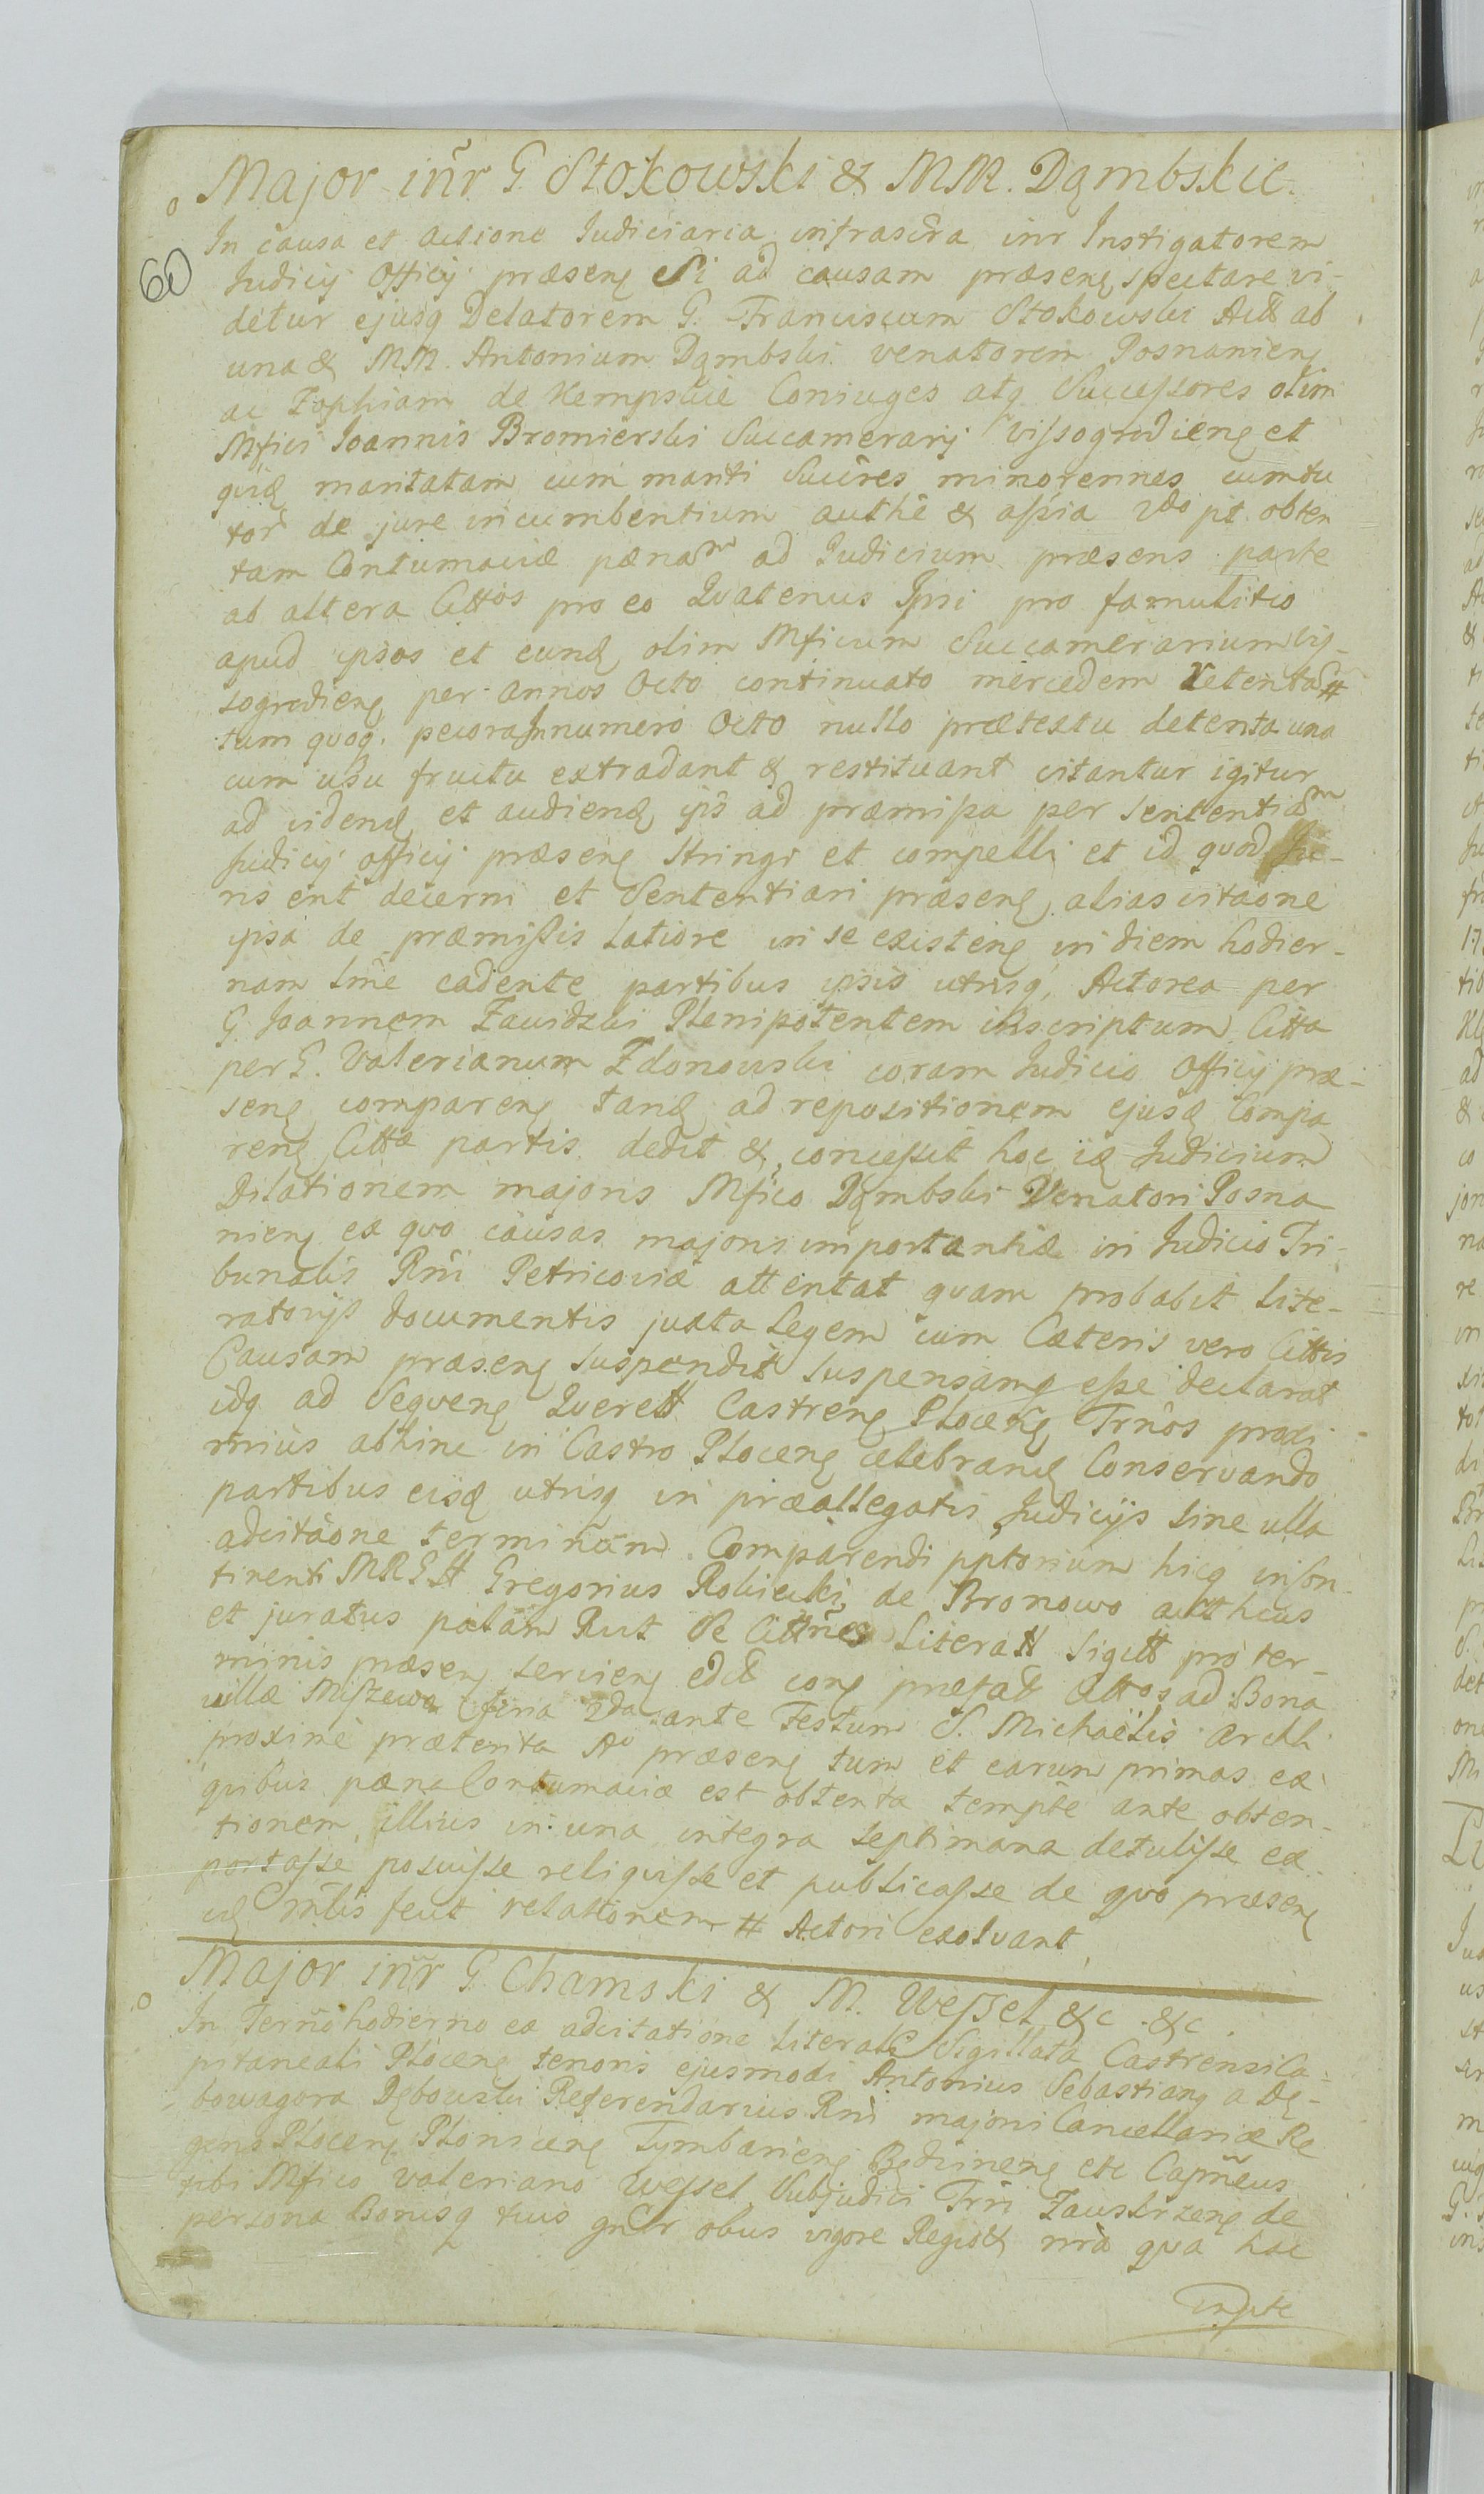 Major inr̃ G. Stokowski & MM. Dąmbskie.
60
In causa et actione Iudiciaria infrascr̃a inr Instigatorem
Judicij Officij præsenꝭ si ad causam præsenꝭ spectare vi-
detur ejusq Delatorem G. Franciscum Stokowski Actt ab
una & MM. Antonium Dąmbski venatorem Posnanienꝭ
ac Zophiam de Kempskie Coniuges atq Successores olim
Mfici Joannis Bromierski Succamerarij Vissogrodienꝭ et
quidꝭ maritatam cum mariti Succres minorennes cum tu
tor de jure incumbentium authẽ & assia Vdo pt. obten
tam Contumaciæ pænam ad Iudicium præsens parte
ab altera Cittos pro eo Quatenus Ipsi pro famulitio
apud ipsos et eundꝭ olim Mficum Succamerarium Vis-
sogrodienꝭ per annos Octo continuato mercedem retentam #
tum quoq. pecora In numero Octo nullo prætextu detenta una
cum usu fructu extradant & restituant citantur igitur
ad videndꝭ et audiendꝭ ips̃ ad præmissa per sententiam
Judicij officij præsenꝭ stringi et compelli et id quod Ju-
ris erit decerni et Sententiari præsenꝭ alias citaõne
ipsa de præmissis latiore in se existenꝭ in diem hodier-
nam lm̃e cadente partibus ipsis utrisq, Actorea per
G. Joannem Zawidzki Plenipotentem inscriptum Citta
per G. Valerianum Zdonowski coram Judicio Officij præ-
senꝭ comparenꝭ tandꝭ ad repositionem ejusdꝭ Compa
renꝭ Cittæ partis dedit & concessit hoc idꝭ Judicium
Dilationem majoris Mfico Dąmbski Venatori Posna
nienꝭ ex quo causas majoris importantiæ in Judicio Tri-
bunalis Rñi Petricoviæ attentat quam probabit lite-
ratorijs documentis juxta Legem cum Cæteris vero Cittis
Causam præsenꝭ suspendit suspensamq esse declarat
idq ad Sequenꝭ Querell Castrenꝭ Plocenꝭ Trños proxi-
mius abhinc in Castro Plocenꝭ celebrandꝭ Conservando
partibus eisdꝭ utrisq in præallegatis Judicijs sine ulla
adcitaõne terminum Comparendi pptorium hicq inson-
tinenti MRGH Gregorius Robiecki de Bronowo auttheus
et juratus palam Rut se Cittñes Literatt Sigitt pro ter-
minis præsenꝭ servienꝭ edtt conꝭ præfatt Cittos ad Bona
villæ Miszewa feria 2da ante Festum S. Michaëlis Archl
proxime præterita Ao præsenꝭ tum et earum primas ex
quibus pæna Contumaciæ est obtenta temptẽ ante obten-
tionem illius in una integra septimana detulisse ex-
portasse posuisse reliquisse et publicasse de quo præsenꝭ
idꝭ mlis fecit relationem # Actori exolvant
Major inr̃ G. Chamski & M. Wessel &c. &c.
In Terño hodierno ex adcitatione Literali Sigillata Castrensi Ca-
pitaneali Plocenꝭ tenoris ejusmodi Antonius Sebastianꝭ a Dę-
bowagora Dębowski Referendarius Rñi majori Cancellariæ Re
gens Plocenꝭ Plonscenꝭ Tymbarienꝭ Będzinenꝭ etc Capñeus
tibi Mfico Valeriano Wessel Subjudici Trñi Zauskrzenꝭ de
persona Bonisq tuis gnlr obus vigore Regiatt nr̃a qua hac
in pte